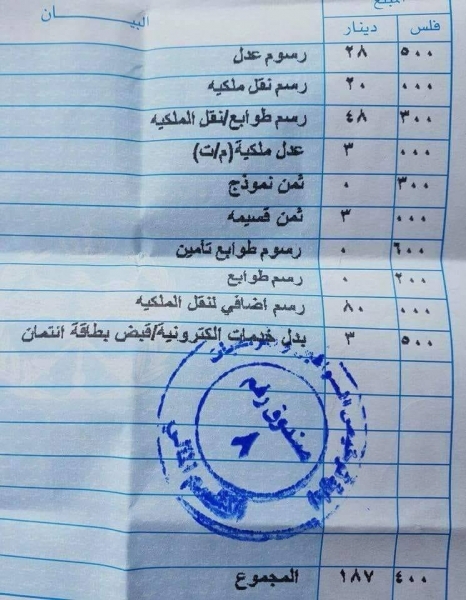 المبلغ
البيـــــان دينار فلس
رسوم عدل ٢٨ ٥٠٠
رسم نقل ملكيه ٢٠ ٠٠٠
رسم طوابع/نقل الملكيه ٤٨ ٣٠٠
عدل ملكية(م/ت) ٣ ٠٠٠
ثمن نموذج ٠ ٣٠٠
ثمن قسيمه ٣ ٠٠٠
رسوم طوابع تأمين ٠ ٦٠٠
رسم طوابع ٠ ٢٠٠
رسم اضافي لنقل الملكيه ٨٠ ٠٠٠
بدل خدمات الكترونية/قبض بطاقة ائتمان ٣ ٥٠٠
ترخيص السواقين
صندوق رقم
٨
المالي
المجموع ١٨٧ ٤٠٠